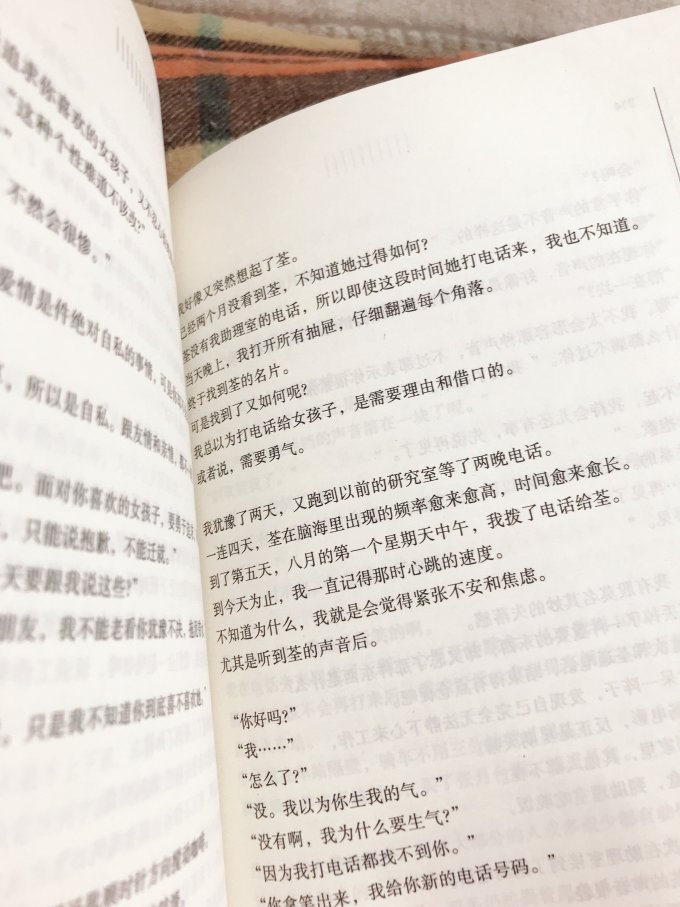 追求你喜欢的女孩子,
“这种个性难道不该改?”
不然会很惨。”
爱情是件绝对自私的事情,
所以是自私。跟友情和亲情,
吧。面对你喜欢的女孩子,要勇于
只能说抱歉,不能迁就。”
天要跟我说这些?”
朋友,我不能老看你犹豫不决,
只是我不知道你到底喜不喜欢她。
顺时针方向搅动咖啡
我好像又突然想起了荃。
已经两个月没看到荃,不知道她过得如何?
荃没有我助理室的电话,所以即使这段时间她打电话来,我也不知道。
当天晚上,我打开所有抽屉,仔细翻遍每个角落。
终于找到荃的名片。
可是找到了又如何呢?
我总以为打电话给女孩子,是需要理由和借口的。
或者说,需要勇气。
我犹豫了两天,又跑到以前的研究室等了两晚电话。
一连四天,荃在脑海里出现的频率愈来愈高,时间愈来愈长。
到了第五天,八月的第一个星期天中午,我拨了电话给荃。
到今天为止,我一直记得那时心跳的速度。
不知道为什么,我就是会觉得紧张不安和焦虑。
尤其是听到荃的声音后。
“你好吗?”
“我……”
“怎么了?”
“没。我以为你生我的气。”
“没有啊,我为什么要生气?”
“因为我打电话都找不到你。”
“你拿笔出来,我给你新的电话号码。”